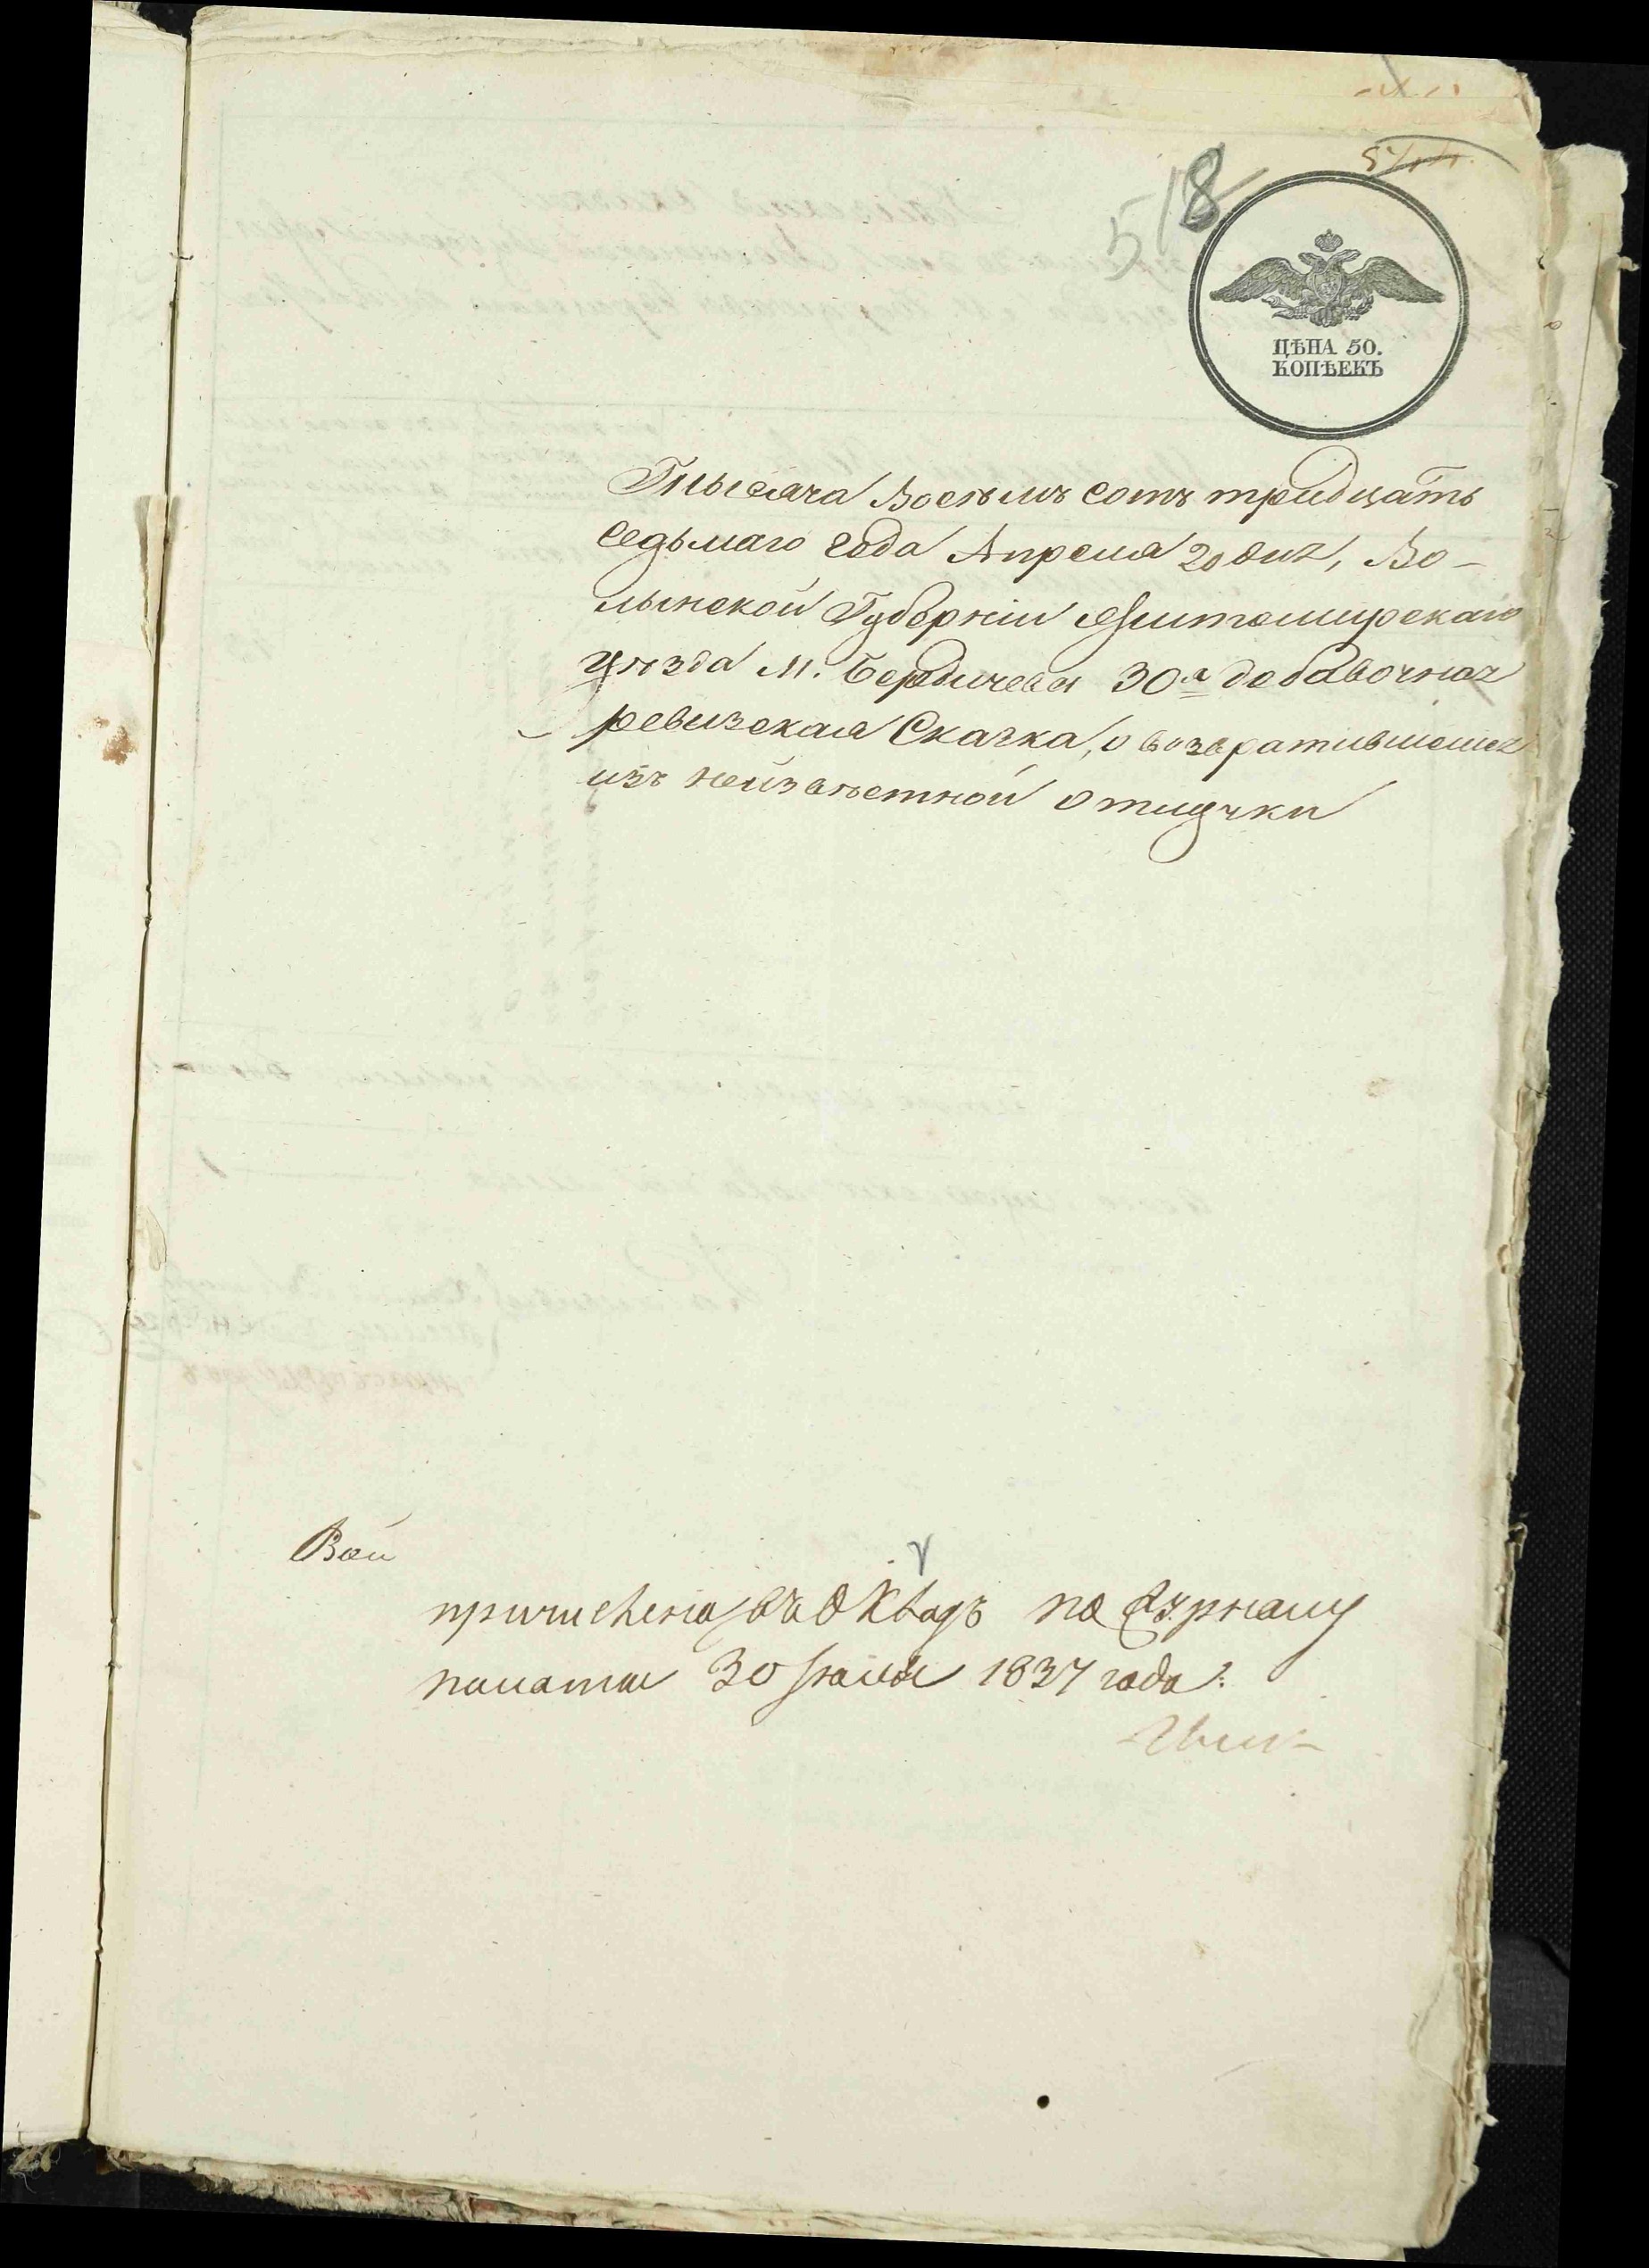 518
ЦѢНА 50.
КОПѢЕКЪ
Тысяча Восѣмъ сотъ тридцать
седьмаго года Апреля 20 дня, Во-
лынской Губерніи Житомирскаго
уѣзда М. Бердичева 30я добавочная
ревизская Скаска, о возвратившемся
изъ неизвѣстной отлучки
причислена въ окладъ по журналу
палаты 30 1837 года.